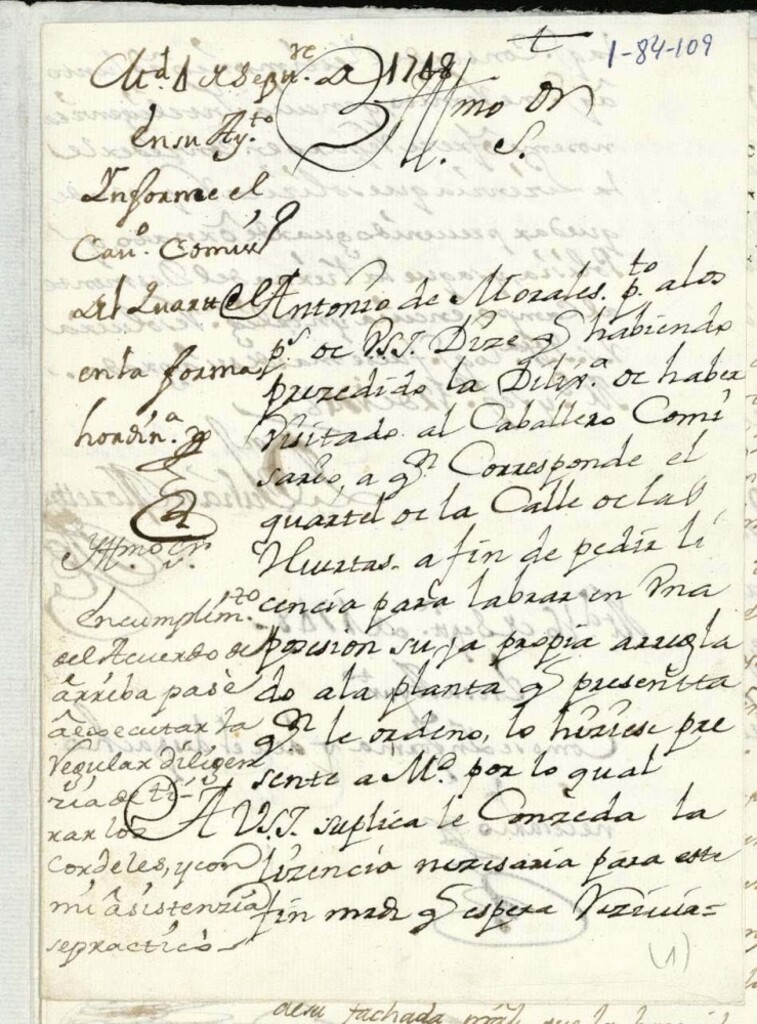 1-84-109
Md. 1 de Sepre. de 1748
en su Ayto.
Informe el
Cavo. Comisro.
del Quartel
en la forma
hordina.
Yllmo Sr
S.
Antonio de Morales, pto. a los
ps. de VSI. Dize q habiendo
prezedido la Dilixa. de haber
Visitado al Caballero Comi
sario, a qn Corresponde el
quartel de la Calle de las
Huertas, a fin de pedir li
cencia para labrar en Una
posesion suya propia arregla
do a la planta q presentta
qn le ordeno, lo hiziese pre
sente a Md. por lo qual
A VSI. suplica le Conzeda la
lizencia nezesaria para este
fin q espera Rezivir=
Yllmo Sr.
En cumplimto
del Acuerdo de
arriba pasè
â executar la
Regular diligen
zia de ti-
rar los
Cordeles, y con
mi âsistenzia
se practicò
(1)
de su fachada